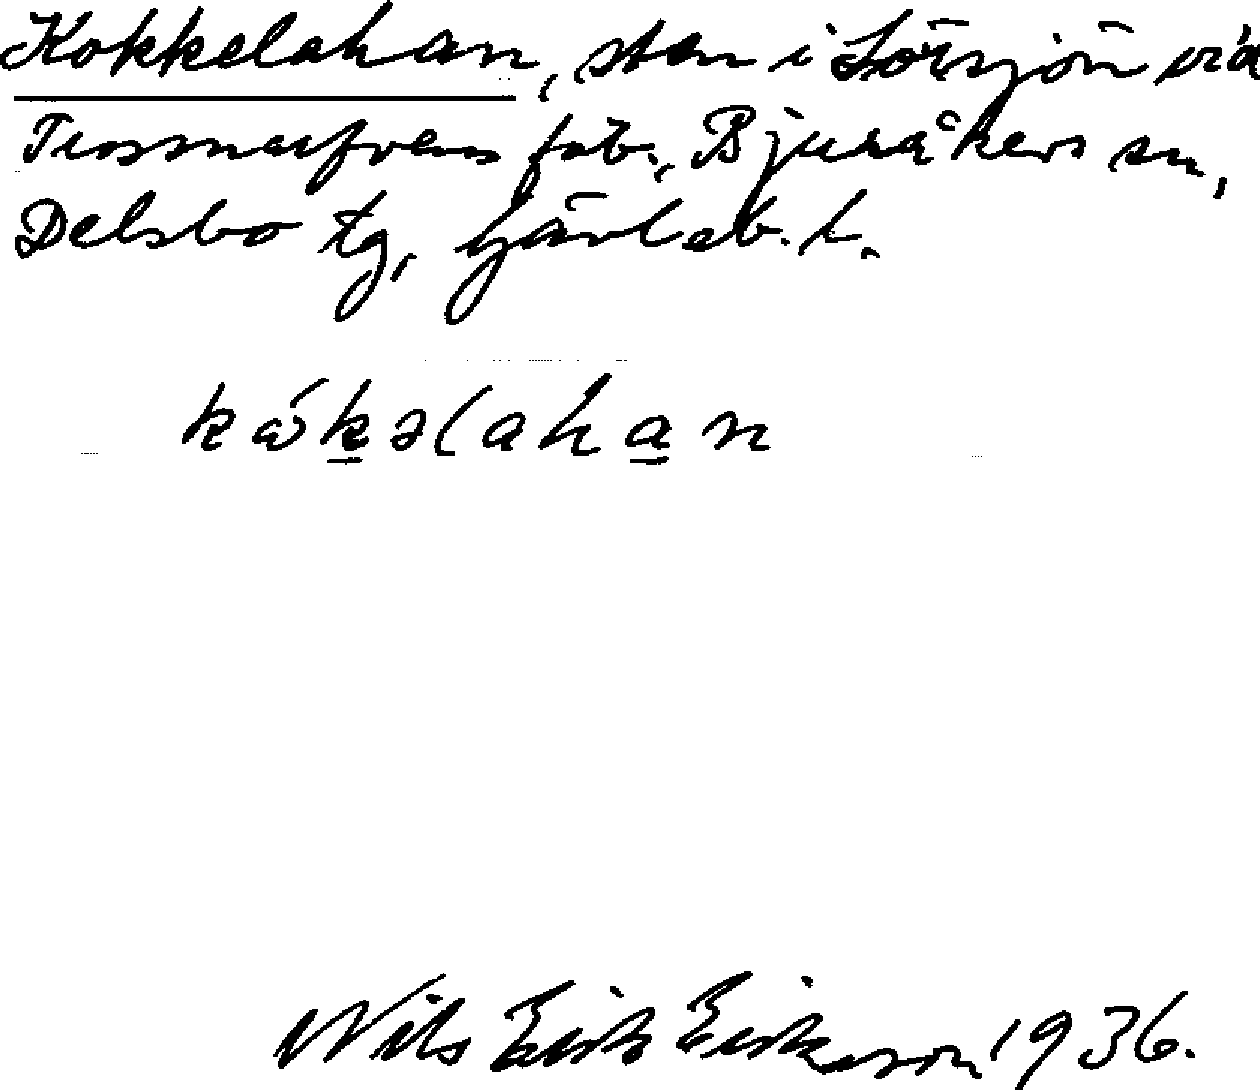 Kokkelahan, sten i Lörsjön vid
Trossnarfvens fäb., Bjuråkers sn,
Delsbo tg, Gävleb. l.
kökəlahan
Nils Erik Erikson 1936.